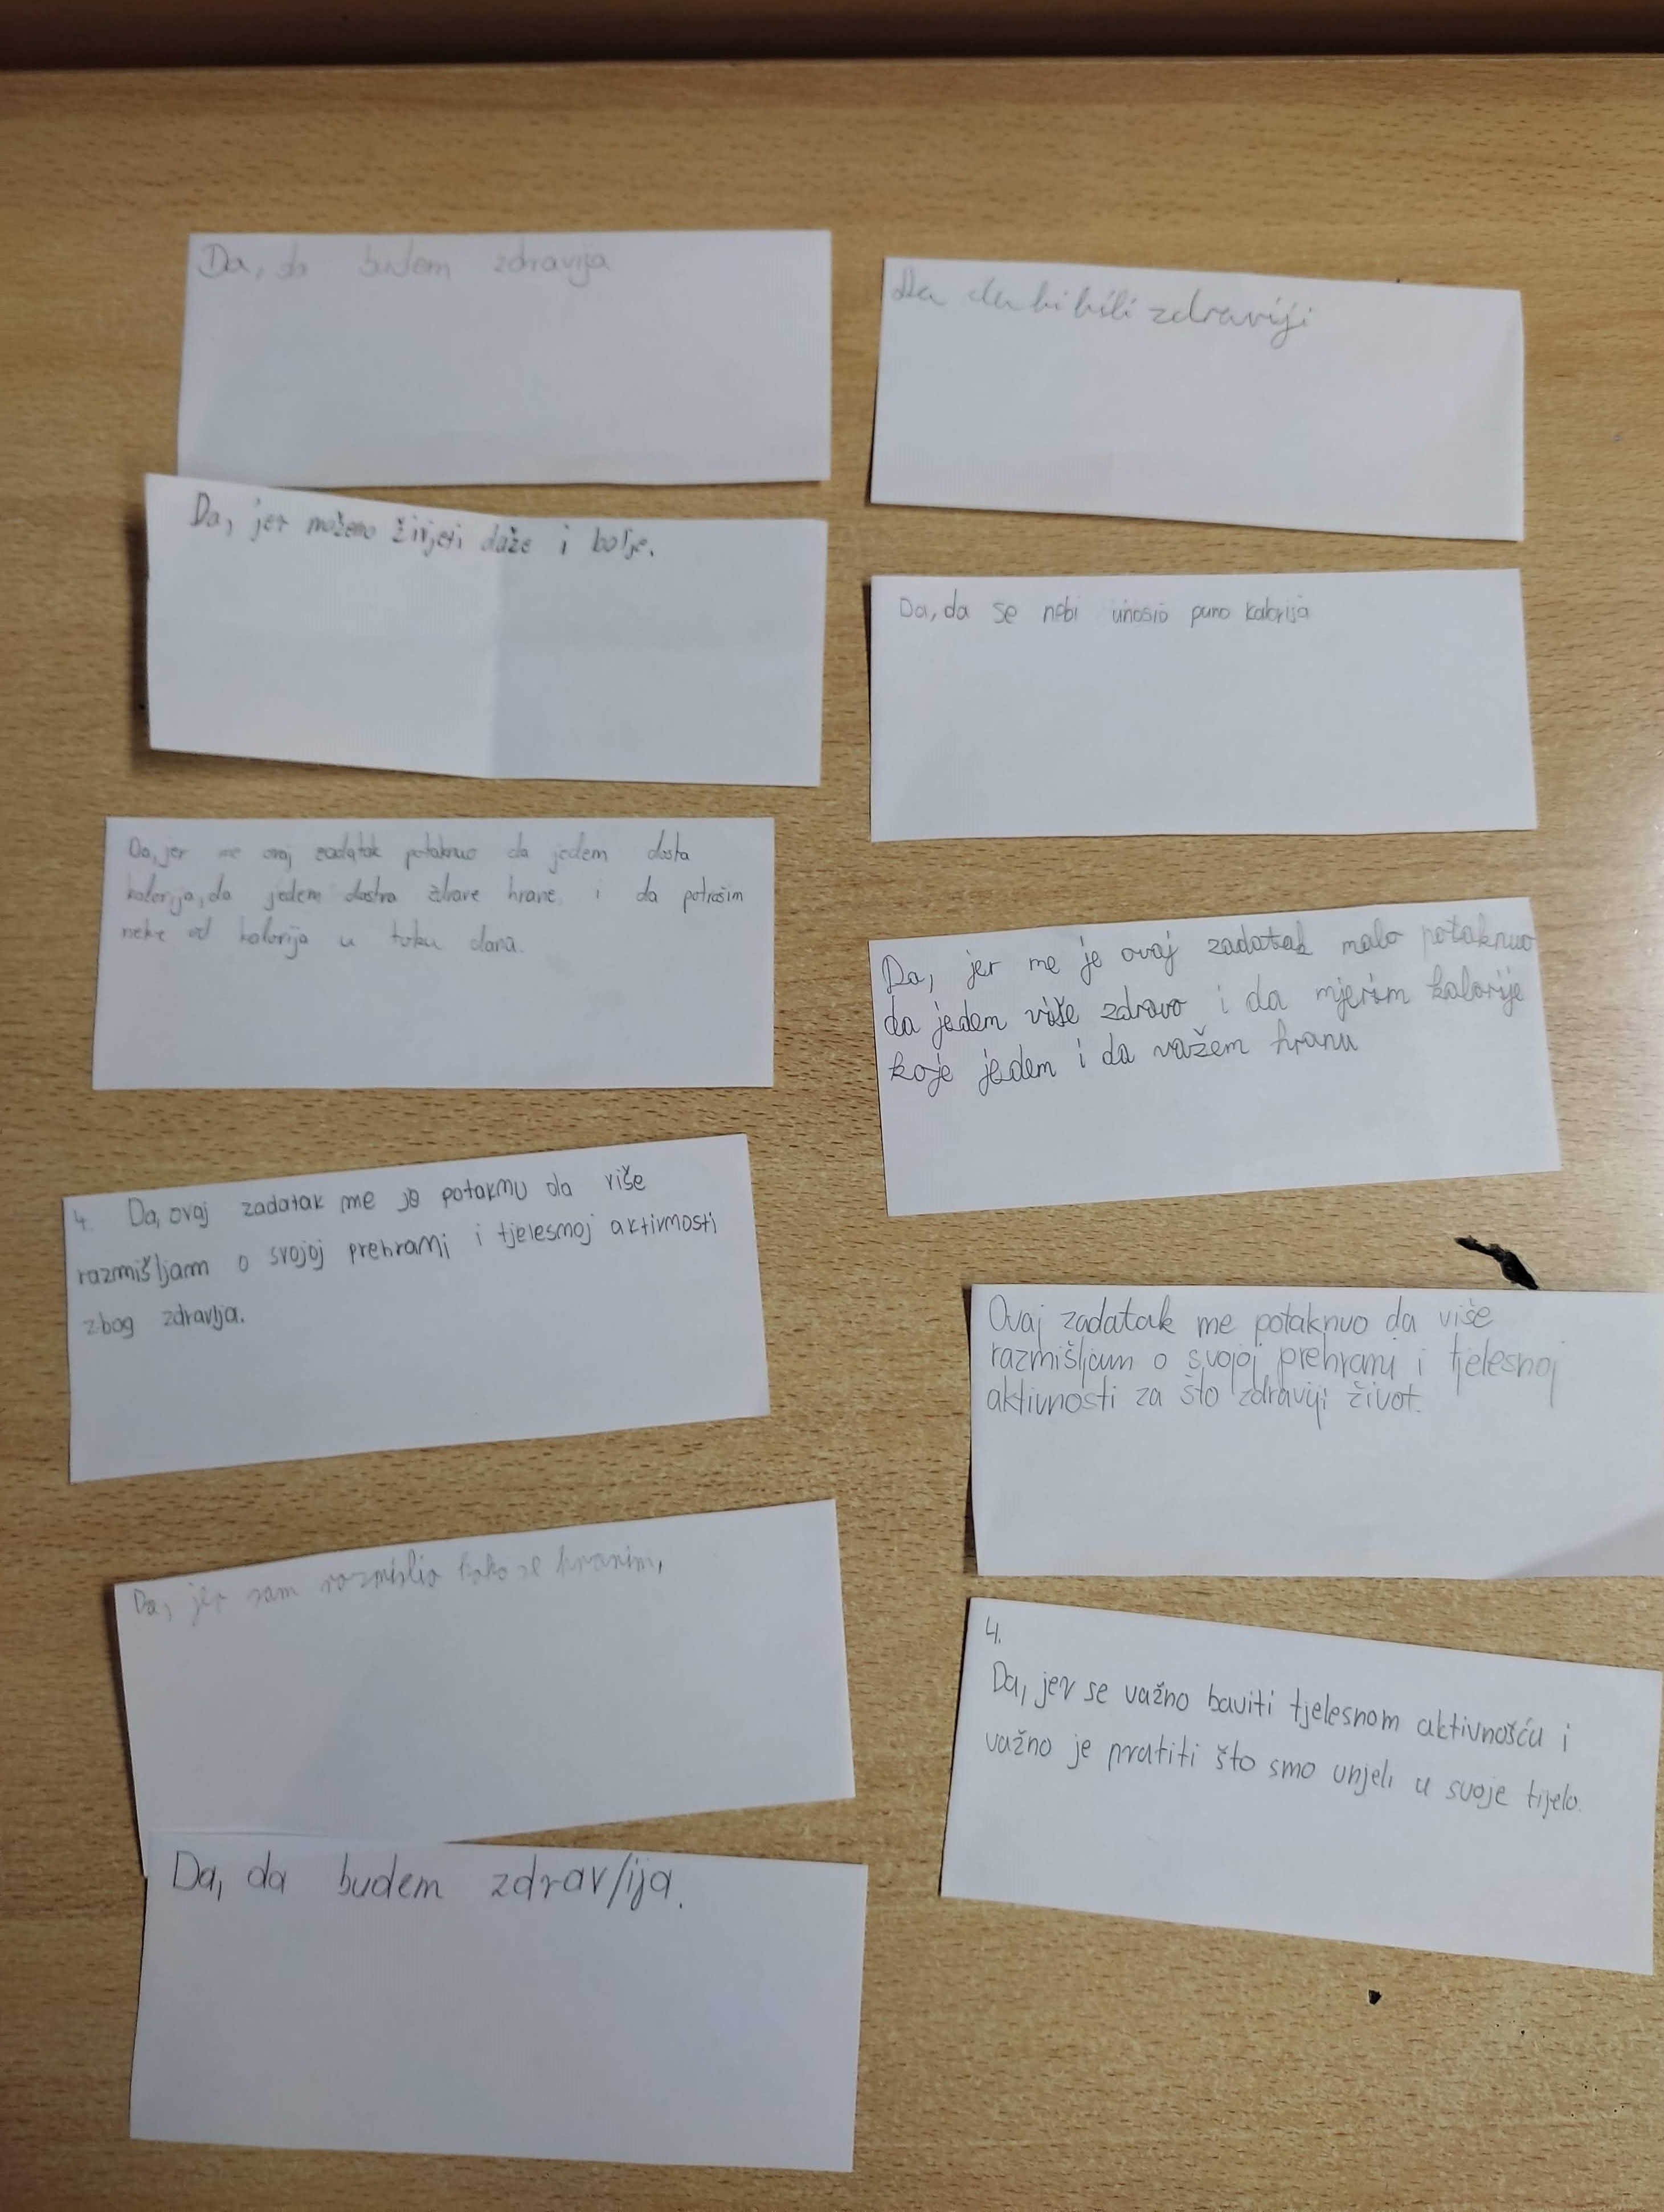 Da, da budem zdravija
Da da bi bili zdraviji
Da, jer možemo živjeti daže i bolje.
Da, da se nebi unosio puno kalorija
Da, jer me ovaj zadatak potaknuo da jedem dosta
kalorija, da jedem dostra zdrave hrane i da potrošim
neke od kalorija u toku dana.
Da, jer me je ovaj zadatak malo potaknuo
da jedem više zdravo i da mjerim kalorije
koje jedem i da važem hranu
4. Da, ovaj zadatak me je potaknu da više
razmišljam o svojoj prehrani i tjelesnoj aktivnosti
zbog zdravlja.
Ovaj zadatak me potaknuo da više
razmišljam o svojoj prehrani i tjelesnoj
aktivnosti za što zdraviji život.
Da, jer sam razmislio kako se hranim,
4.
Da, jer se važno baviti tjelesnom aktivnošću i
važno je pratiti što smo unjeli u svoje tijelo.
Da, da budem zdrav/ija.